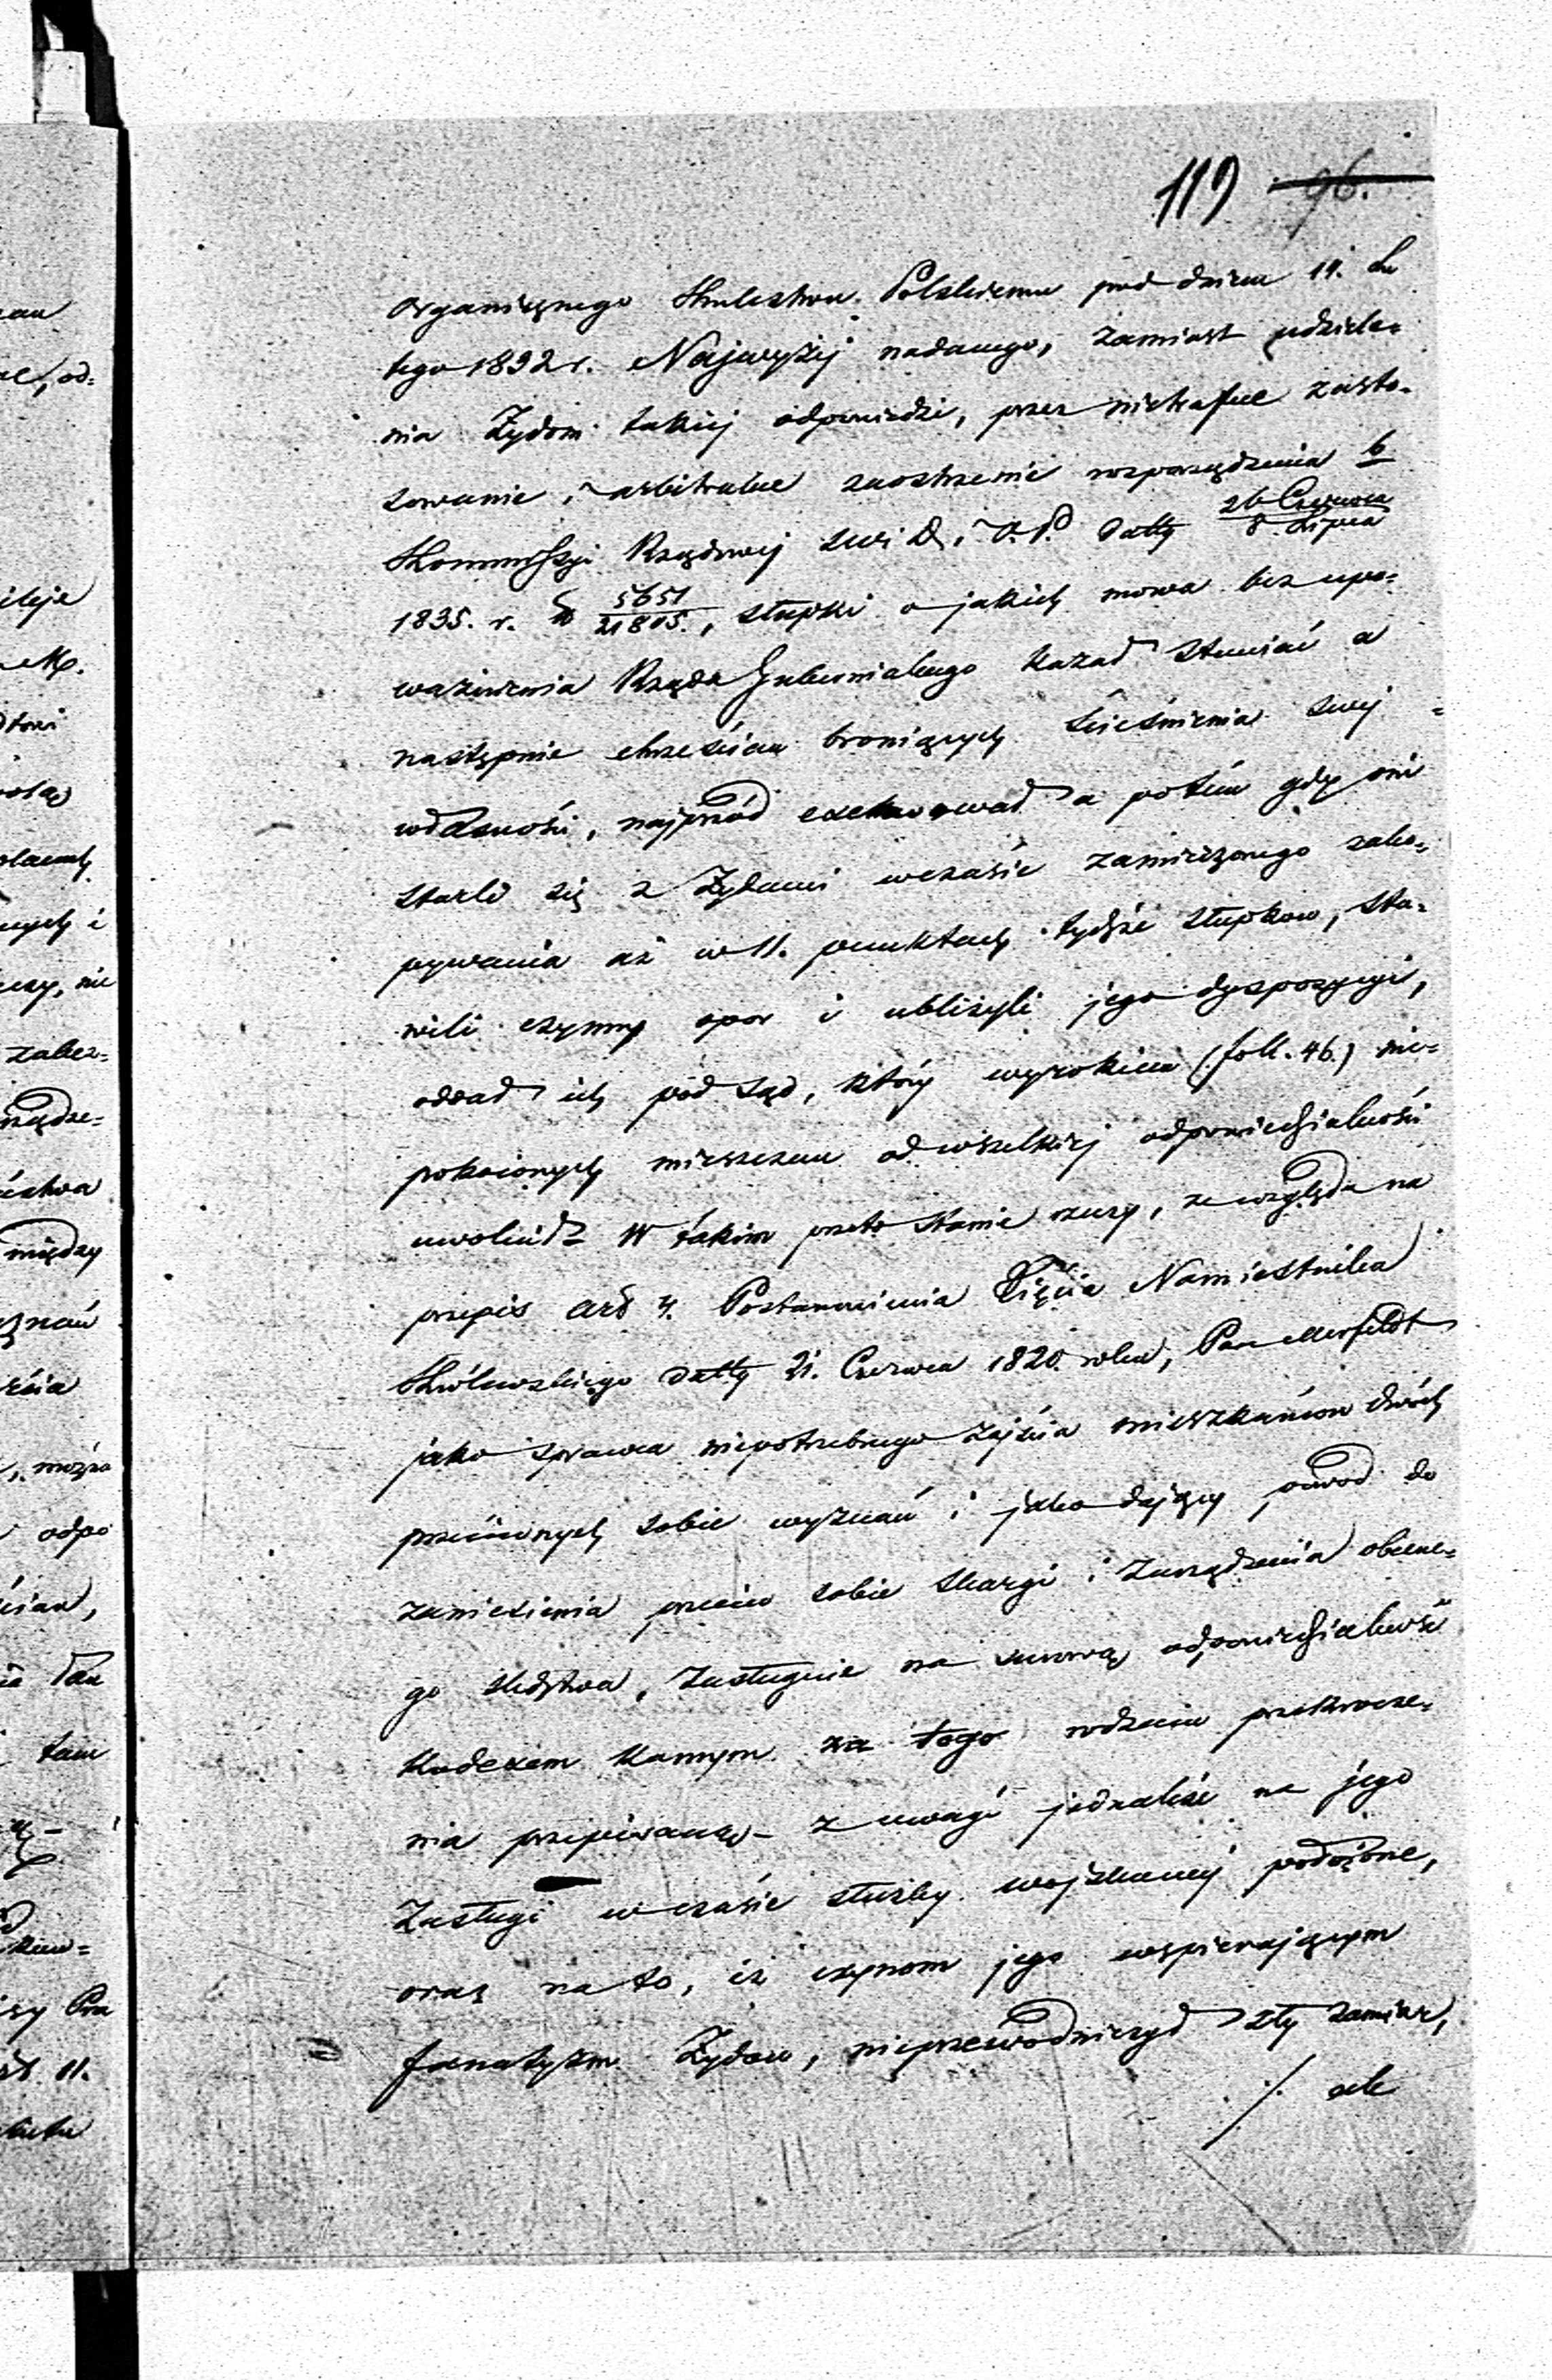 119 96.
organicznego Królestwu Polskiemu pod dniem 14. Lu
tego 1832 r. Najwyżej nadanego, zamiast udziele=
nia Żydom takiej odpowiedzi, przez nietrafne zasto=
sowanie i arbitralne zaostrzenie rozporządzenia b
Kommissyi Rządowej S. W. D. i O. P. datty 26 Czerwca / 8 Lipca
1835. r. N 5651/21805., słupki o jakich mowa bez upo=
ważnienia Rządu Gubernialnego kazał stawiać a
następnie chrześcian broniących ścieśnienia swej
własności, najprzód exekwował a potém gdy oni
starli się z Żydami wczasie zamierzonego zako=
pywania aż w 11. punktach tychże słupkow, sta=
wili czynny opor i ubliżyli jego dyspozycyi,
oddał ich pod Sąd, który wyrokiem (foll. 46.) nie=
pokoionych mieszczan od wszelkiej odpowiedzialności
uwolnił – W takim przeto stanie rzeczy, ze względu na
przepis art 4. Postanowienia Xięcia Namiestnika
Królewskiego datty 21. Czerwca 1820. roku, Pan
jako sprawca niepotrzebnego zajścia mieszkańców dwóch
przeciwnych sobie wyznań i jako dający powod do
zaniesienia przeciw sobie skargi i zarządzenia obecne=
go śledztwa, zasługuie na surową odpowiedzialność
Kodexem Karnym za tego rodzaiu przekrocze=
nia przepisaną – z uwagi jednakże na jego
zasługi w czasie służby wojskowej położone,
oraz na to, iż czynom jego wspierającym
fanatyzm Żydow, nieprzewodniczył zły zamiar,
./. ale